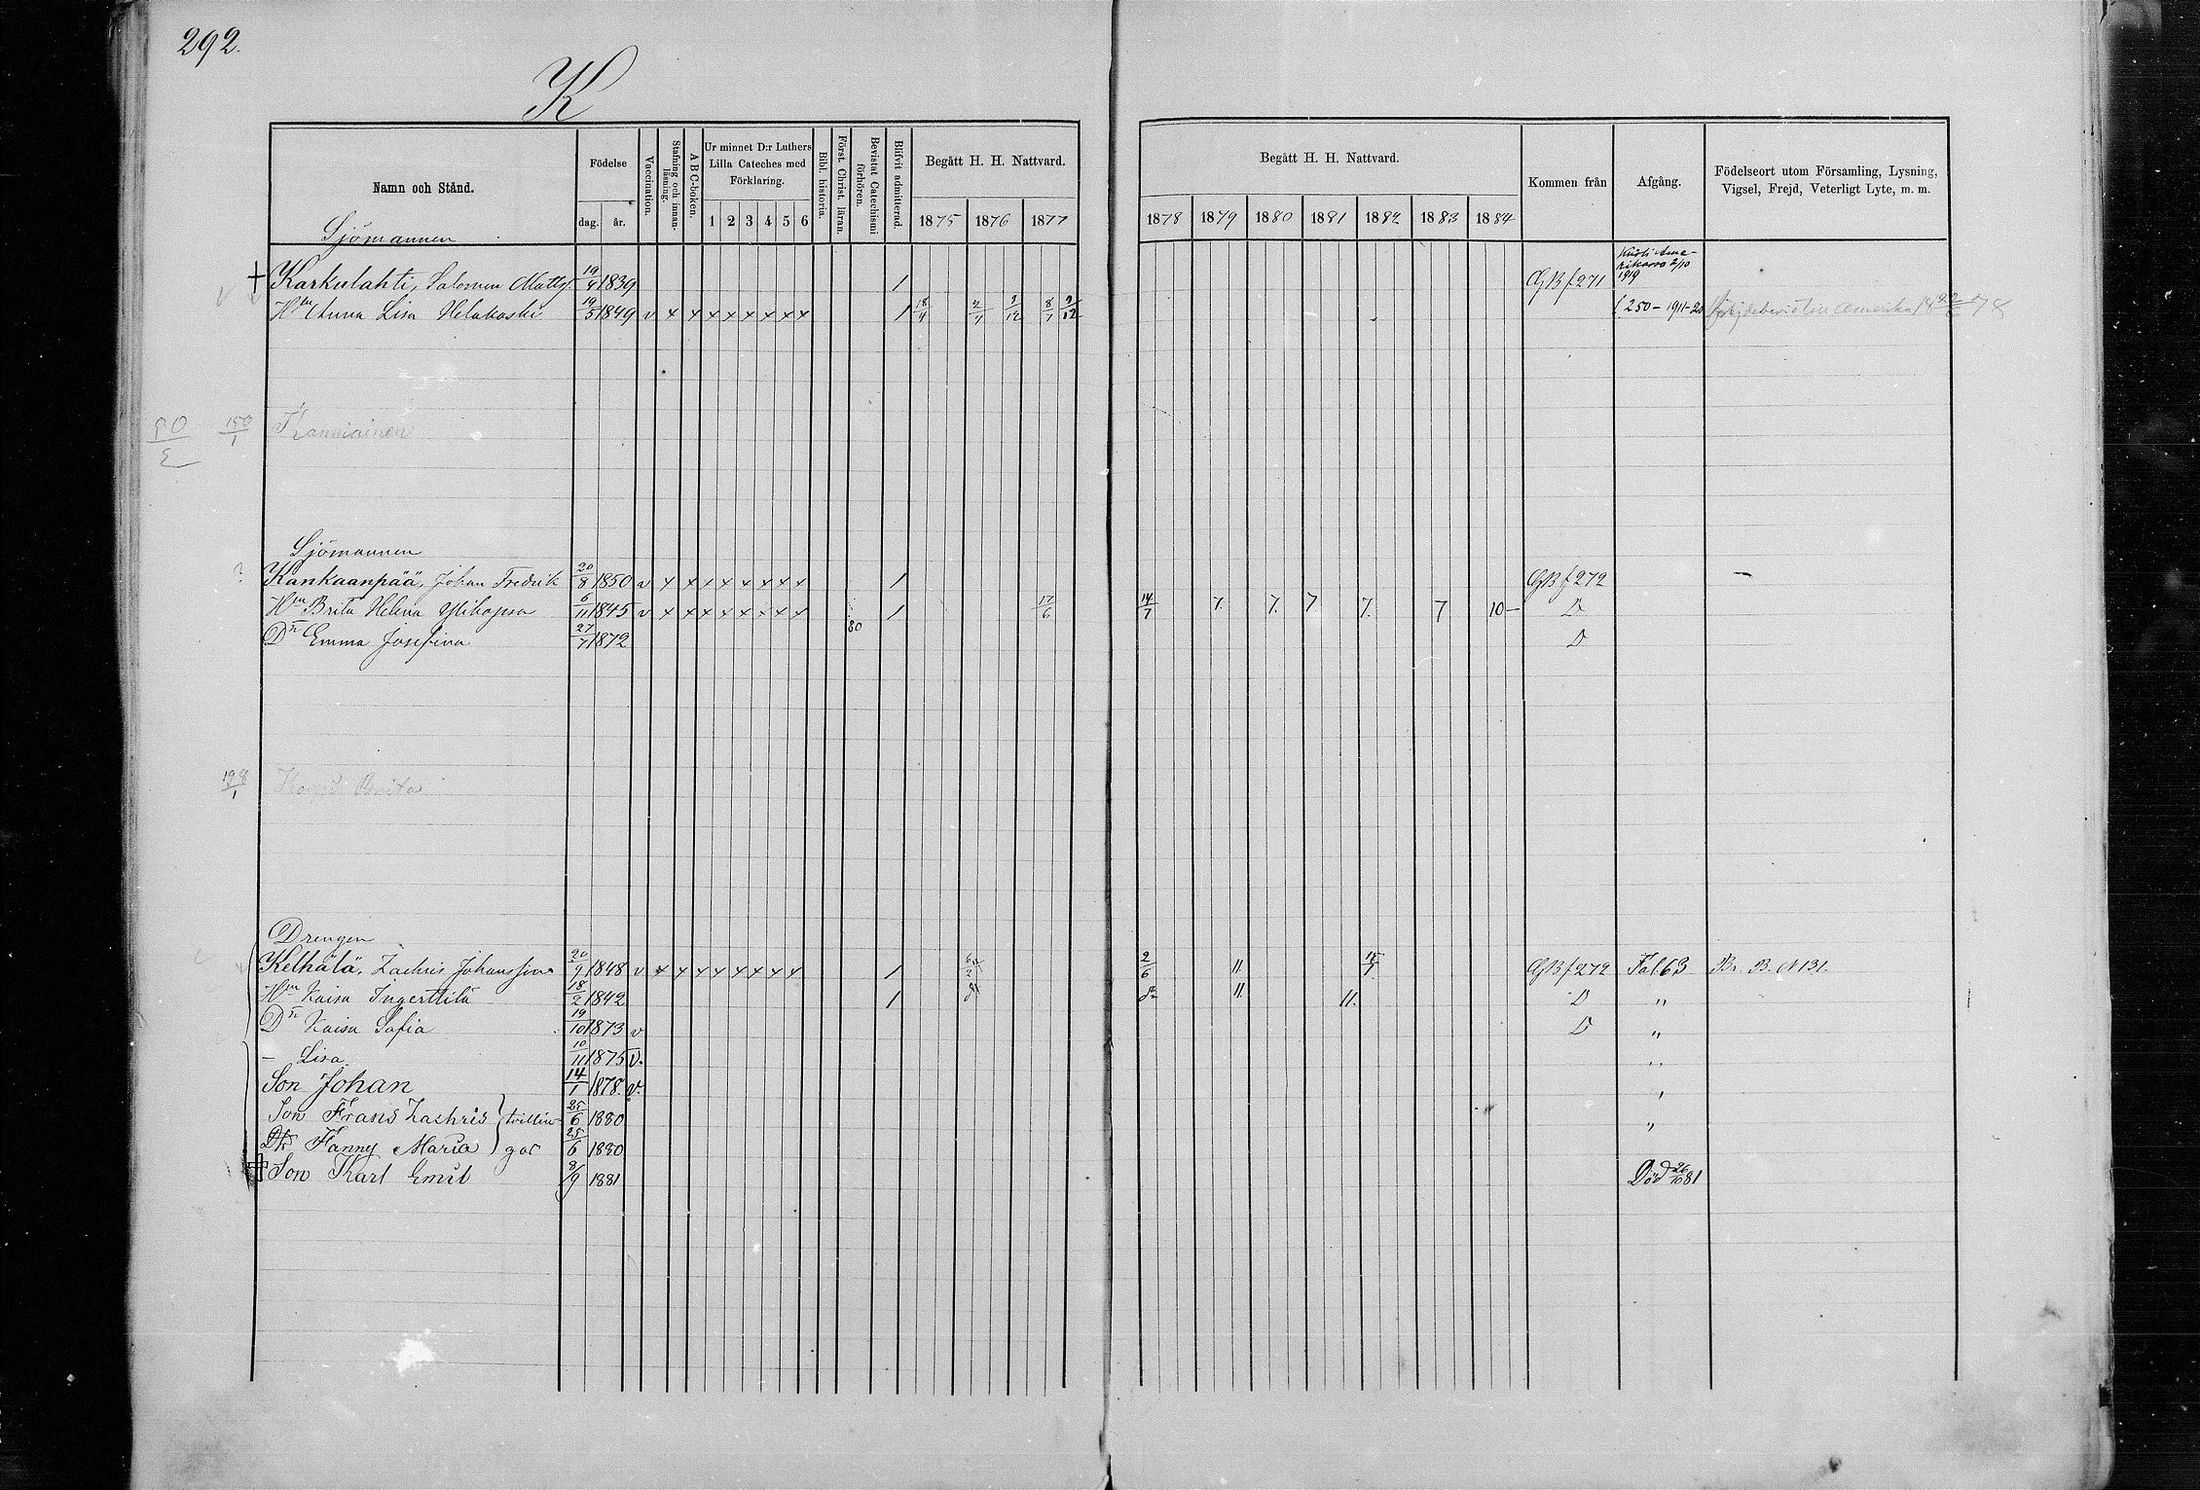 292.
K
Namn och Stånd.
Födelse
dag. år.
Vaccination.
Stafning och innanläsning.
ABC-boken.
Ur minnet D:r Luthers Lilla Cateches med Förklaring.
1 2 3 4 5 6
Bibl. historia.
Först. Christ. läran.
Bevistat Catechismi förhören.
Blifvit admitterad.
Begått H. H. Nattvard.
1875 1876 1877
Begått H. H. Nattvard.
1878 1879 1880 1881 1882 1883 1884
Kommen från
Afgång.
Födelseort utom Församling, Lysning, Vigsel, Frejd, Veterligt Lyte, m. m.
Sjömannen
Karkulahti, Salomon Matts. 19/4 1839 1 GB f 271 Kuoli Amerikassa 2/10 1919
Hm Anna Lisa Helakoski 19/5 1849 v x x x x x x x x 1 18/4 2/7 3/12 8/7 2/12 f 250-1911-20 till Amerika
150/1 Kanniainen
Sjömannen
? Kankaanpää, Johan Fredrik 20/8 1850 v x x x x x x x x 1 GB f 272 —
Hm Brita Helena 6/11 1845 v x x x x x x x x 1 17/6 14/7 7. 7. 7 7. 7 10— D
Dr Emma Josefina 27/7 1872 80 D
198/1 Brita
Drengen
Kelhälä, Zachris Johansson 20/9 1848 v x x x x x x x x 1 2/6 11. GB f 272 Fal. 63 Br. B. N 131.
Hm Kaisa Ingerttilä 18/2 1842 1 11. 11. D "
Dr Kaisa Sofia 19/10 1873 v D "
— Lisa 10/11 1875 v. "
Son Johan 14/1 1878. v. "
Son Frans Zachris } tvillin- 25/6 1880 "
Dr Fanny Maria } gar 25/6 1880
Son Karl Emil 8/9 1881 Död 26/10 81